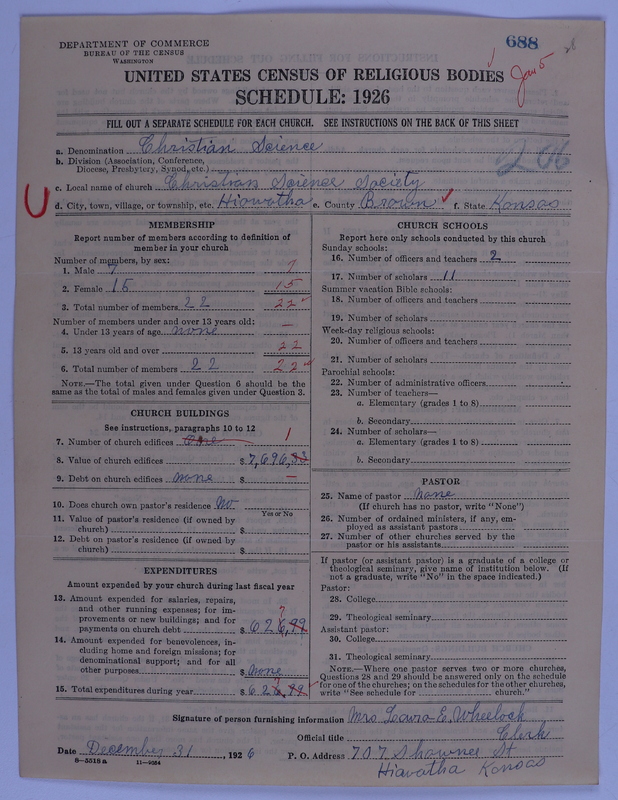 688
DEPARTMENT OF COMMERCE
BUREAU OF THE CENSUS
WASHINGTON
Jan 5
UNITED STATES CENSUS OF RELIGIOUS BODIES
SCHEDULE: 1926
FILL OUT A SEPARATE SCHEDULE FOR EACH CHURCH. SEE INSTRUCTIONS ON THE BACK OF THIS SHEET
a. Denomination Christian Science
b. Division (Association, Conference,
Diocese, Presbytery, Synod, etc.)
c. Local name of church Christian Science Society
d. City, town, village, or township, etc. Hiawatha e. County Brown f. State Kansas
MEMBERSHIP
Report number of members according to definition of
member in your church
Number of members, by sex:
1. Male 7 7
2. Female 15 15
3. Total number of members 22 22
Number of members under and over 13 years old:
4. Under 13 years of age none —
5. 13 years old and over 22
6. Total number of members 22 22
NOTE.—The total given under Question 6 should be the
same as the total of males and females given under Question 3.
CHURCH BUILDINGS
See instructions, paragraphs 10 to 12
7. Number of church edifices One 1
8. Value of church edifices $7,696,
9. Debt on church edifices none $ —
10. Does church own pastor's residence No
Yes or No
11. Value of pastor's residence (if owned by
church) $
12. Debt on pastor's residence (if owned by
church) $
EXPENDITURES
Amount expended by your church during last fiscal year
13. Amount expended for salaries, repairs,
and other running expenses; for im-
provements or new buildings; and for
payments on church debt $626,99
7
14. Amount expended for benevolences, in-
cluding home and foreign missions; for
denominational support; and for all
other purposes $none
15. Total expenditures during year $626,99
CHURCH SCHOOLS
Report here only schools conducted by this church
Sunday schools:
16. Number of officers and teachers 2
17. Number of scholars 11
Summer vacation Bible schools:
18. Number of officers and teachers
19. Number of scholars
Week-day religious schools:
20. Number of officers and teachers
21. Number of scholars
Parochial schools:
22. Number of administrative officers
23. Number of teachers—
a. Elementary (grades 1 to 8)
b. Secondary
24. Number of scholars—
a. Elementary (grades 1 to 8)
b. Secondary
PASTOR
25. Name of pastor none
(If church has no pastor, write "None")
26. Number of ordained ministers, if any, em-
ployed as assistant pastors
27. Number of other churches served by the
pastor or his assistants
If pastor (or assistant pastor) is a graduate of a college or
theological seminary, give name of institution below. (If
not a graduate, write "No" in the space indicated.)
Pastor:
28. College
29. Theological seminary
Assistant pastor:
30. College
31. Theological seminary
NOTE.—Where one pastor serves two or more churches,
Questions 28 and 29 should be answered only on the schedule
for one of the churches; on the schedules for the other churches,
write "See schedule for church."
Signature of person furnishing information Mrs Laura E. Wheelock
Official title Clerk
Date December 31, 1926 P. O. Address 707 Shawnee St
8—5518a 11—9054
Hiawatha Kansas